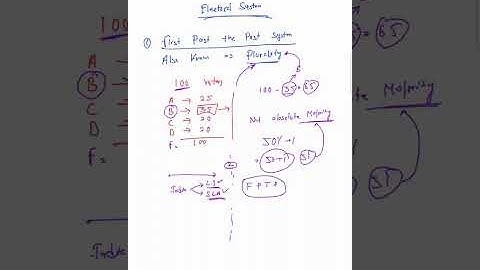 Electoral System
① First Past the Post System
Also Known as Plurality
100 Voters
B
A → 25
100 - 35 = 65
B → 35 →
C → 20
D → 20
Not absolute Majority
F = 100
50% + 1
50 + 1 = 51
India
LS ✓
SLA ✓
F P T P